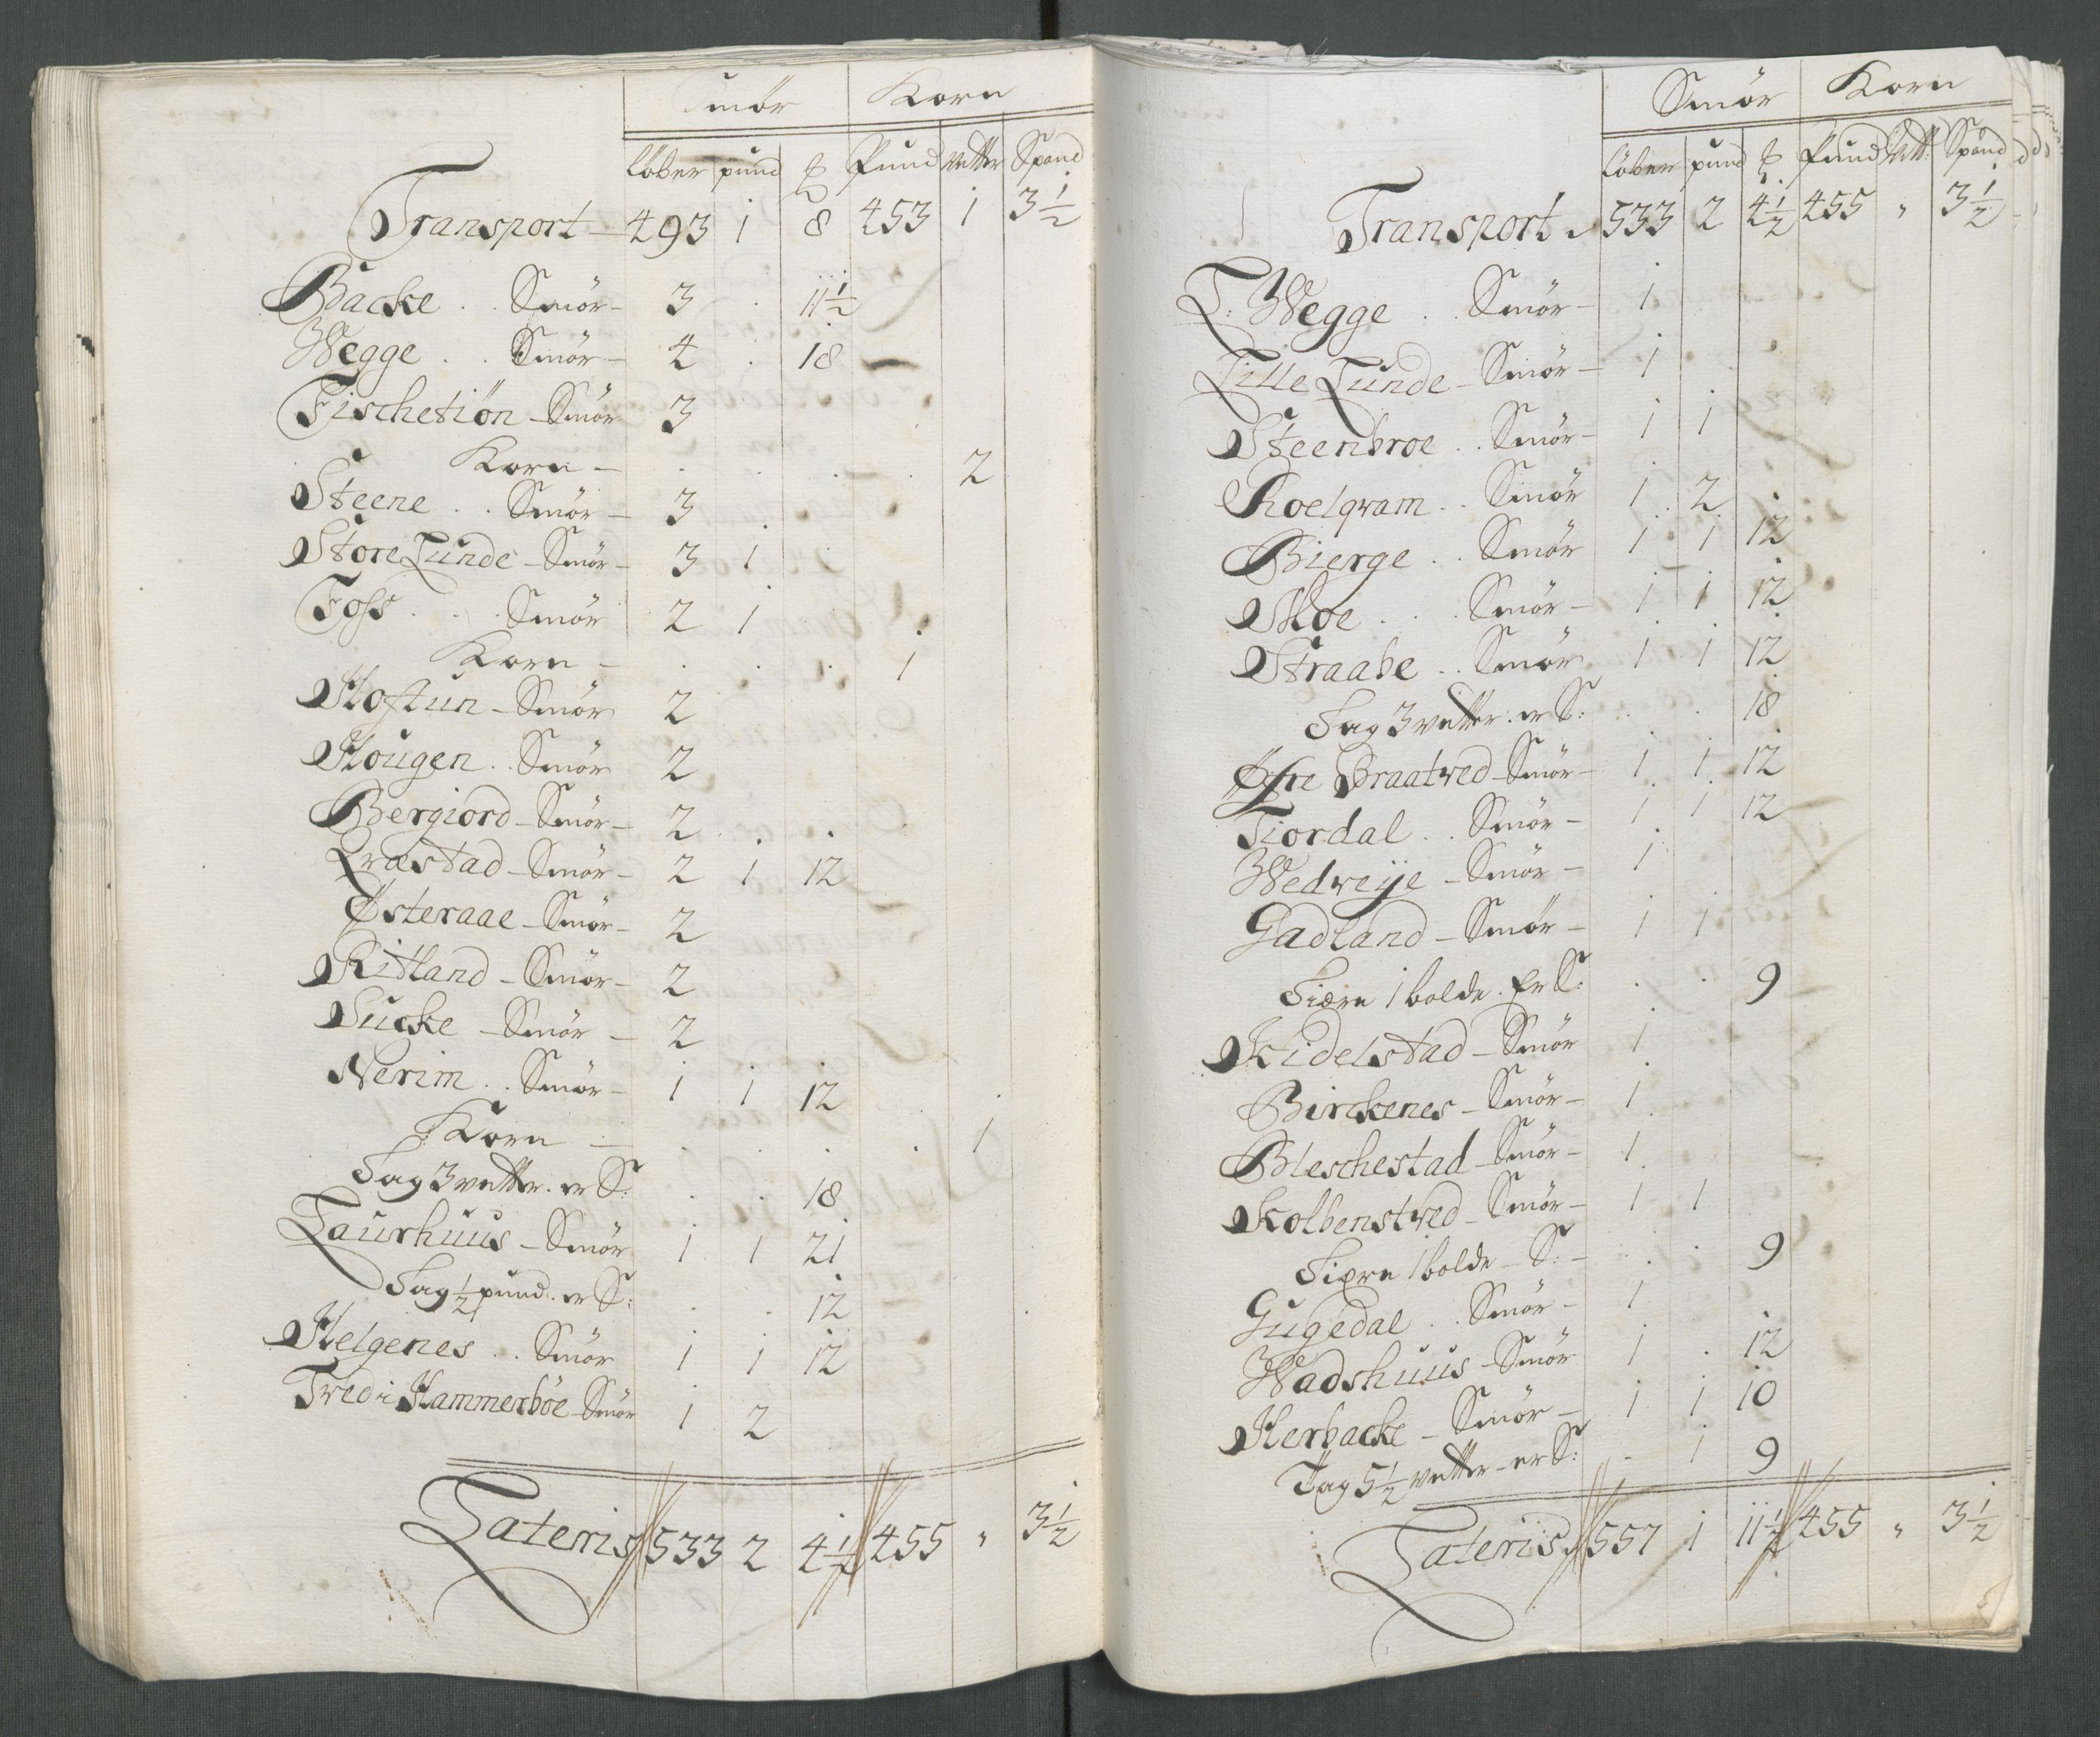 Smör Korn
löber pund ℔ Pund Vetter Spand
Transport - 493 1 8 453 1 3½
Backe . . Smör - 3 . 11½
Wegge . . Smör - 4 . 18
Fischetiön - Smör 3
Korn - . . . . 2
Steene . . Smör - 3
Store Lunde - Smör - 3 1
Foss . . . Smör 2 1
Korn - . . . 1
Hoftun - Smör 2
Hougen . . Smör 2
Bergiord - Smör - 2
Qvastad - Smör - 2 1 12
Østeraae - Smör - 2
Ritland - Smör - 2
Sucke - Smör - 2
Nerim . . Smör - 1 1 12
Korn - . . . . 1
Tag 3 vetter . er S: . . 18
Laurhuus - Smör 1 1 21
Tag ½ pund . er S: . . 12
Helgenes . . Smör 1 1 12
Tved i Hammerböe - Smör 1 2
Lateris 533 2 4½ 455 " 3½
Smör Korn
löber pund ℔ Pund Vett: Spand
Transport . 533 2 4½ 455 " 3½
L: Wegge . . Smör - 1
Lille Lunde - Smör - 1
Steenbroe . . Smör - 1 1
Roelqvam . . Smör 1 2
Bierge . . Smör 1 1 12
Moe . . . Smör - 1 1 12
Straabe . . Smör 1 1 12
Tag 3 vetter . er S: . . 18
Øfre Braatved - Smör - 1 1 12
Tiordal . . Smör - 1 1 12
Wedveije - Smör - 1
Gadland - Smör - 1 1
Tiære 1 bolde . Er S: . . 9
Kidelstad - Smör 1
Birckenes - Smör - 1
Bleschestad - Smör - 1
Kolbenstved - Smör - 1 1
Tiære 1 bolde - S: - . . 9
Gugedal . . Smör - 1
Wadshuus - Smör 1 . 12
Herbacke - Smör - 1 1 10
Tag 5½ vetter - er S: . 1 9
Lateris 557 1 11½ 455 " 3½